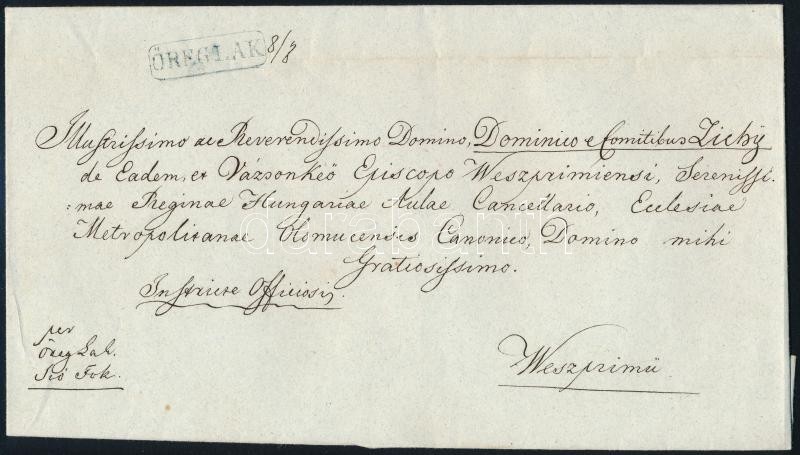 ÖREGLAK 8/8
Illustrissimo ac Reverendissimo Domino, Dominico e Comitibus Zichÿ
de Eadem, et Vázsonkeö Episcopo Weszprimiensi, Serenissi-
:mae Reginae Hungariae Aulae Cancellario, Ecclesiae
Metropolitanae Olomucensis Canonico, Domino mihi
Gratiosissimo.
Instricte Officiosi,
per
Öreg Lak.
Sió Fok.
Weszprimü
darabanth